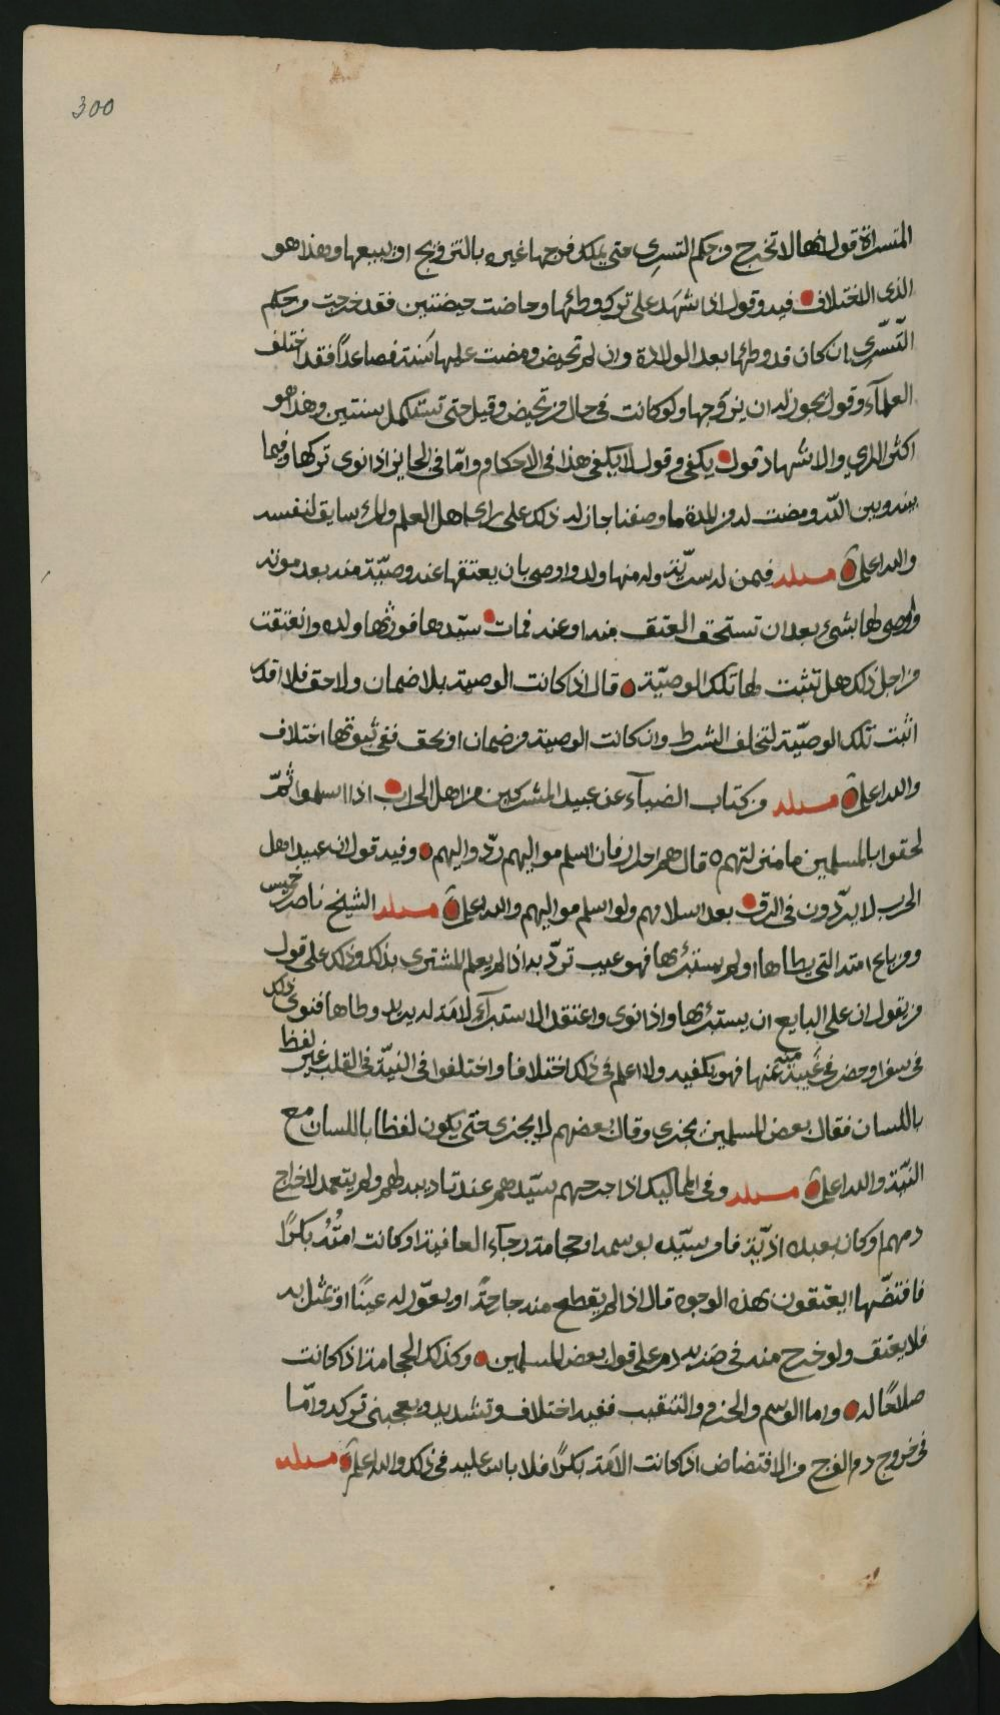 300
المتسراة قول انها لا تخرج من حكم التسري حتى يملك فرجها غيره بالتزويج او يبيعها وهذا هو
الذي الاختلاف فيه وقول اذا شهد على تركه وطئها وحاضت حيضتين فقد خرجت من حكم
التّسّري ان كان قد وطئها بعد الولادة وان لم تحيض ومضت عليها سنة فصاعداً فقد اختلف
العلمآء وقول يجوز له ان يزوجها ولو كانت في حال من تحيض وقيل حتى تستكمل سنتين وهذا هو
اكثر الراي والاشهاد قول يكفي وقول لا يكفي هذا في الاحكام وامّا في الجايز اذا نوى تركها فيما
بينه وبين الله ومضت له من المدة ما وصفنا جاز له ذلك على راي اهل العلم والمرء سايق لنفسه
والله اعلم مسئلة فيمن له سريّة وله منها ولد واوصى بان يعتقها عنه وصيّة منه بعد موته
واوصى لها بشيء بعد ان تستحق العتق منه او عنه فمات سيّدها فورثها ولده وانعتقت
من اجل ذلك هل تثبت لها تلك الوصيّة قال اذا كانت الوصية بلا ضمان ولا حق فلا اقدر
اثبت تلك الوصيّة لتخلف الشرط وان كانت الوصية من ضمان او بحق ففي ثبوتها اختلاف
والله اعلم مسئلة من كتاب الضيآء عن عبيد المشركين من اهل الحرب اذا اسلموا ثمّ
لحقوا بالمسلمين ما منزلتهم قال هم احرار فان اسلم مواليهم ردّوا اليهم وفيه قول ان عبيد اهل
الحرب لا يردّون في الرق بعد اسلامهم ولو اسلم مواليهم والله اعلم مسئلة الشيخ ناصر بن خميس
ومن باع امته التي يطاها ولم يستبرئها فهو عيب تردّ به اذا لم يعلم المشتري بذلك وذلك على قول
من يقول ان على البايع ان يستبرئها واذا نوى واعتقد الاستبرآء لامة له يريد وطاها فنوى ذلك
في سفر او حضر في غيبة منه عنها فهو يكفيه ولا اعلم في ذلك اختلافا واختلفوا في النيّة في القلب غير لفظا
باللسان فقال بعض المسلمين يجزى وقال بعضهم لا يجزى حتى يكون لفظا باللسان مع
النيّة والله اعلم مسئلة وفي المماليك اذا جرحهم سيّدهم عند تاديبه لهم ولم يتعمد لاخراج
دمهم او كان بعبده اذيّة فامر سيّده بوسمه او حجامة رجآء العافية او كانت امَتُهُ بكرًا
فافتضّها ايعتقون بهذه الوجوه قال اذا لم يقطع منه جارحةً او يعوّر له عينًا او يمثل به
فلا يعتق ولو خرج منه في ضربه دم على قول بعض المسلمين وكذلك الحجامة اذا كانت
صلاحًا له واما الوسم والخزم والتثقيب ففيه اختلاف وتشديد ويعجبني تركه وامّا
في خروج دم الفرج من الافتضاض اذا كانت الامة بكرًا فلا باس عليه في ذلك والله اعلم مسئلة